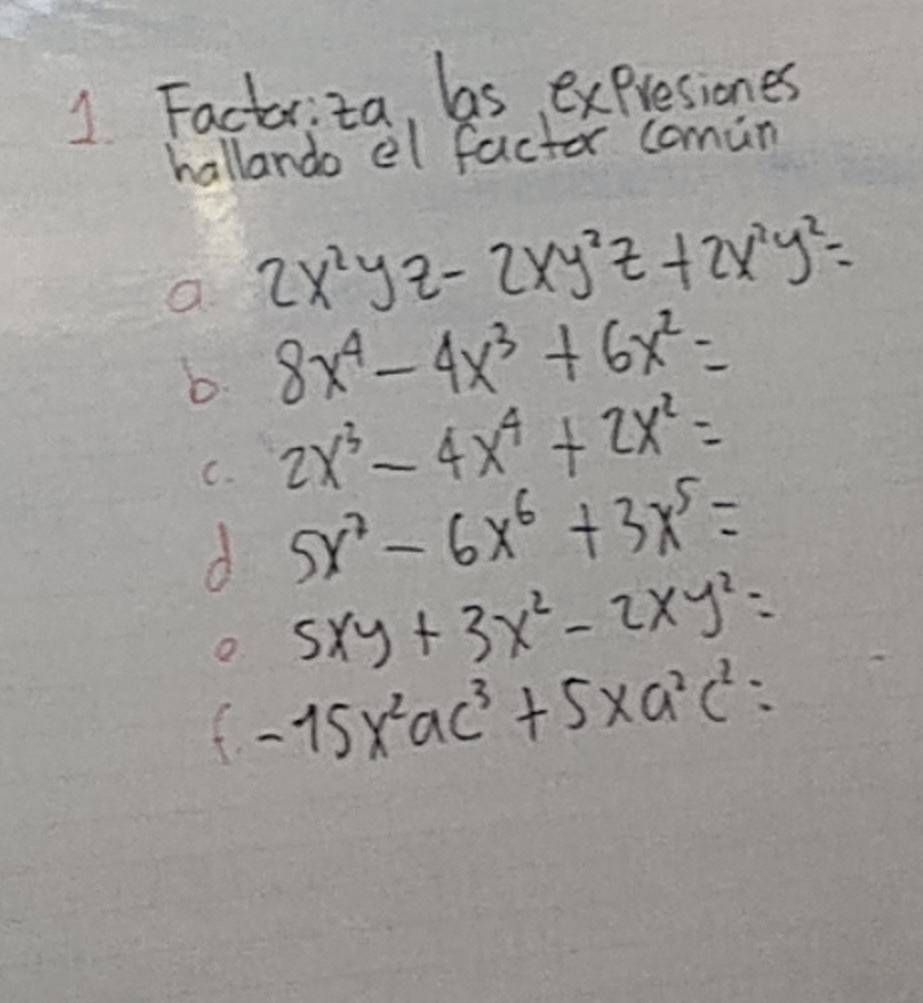 1. Factoriza, las expresiones
hallando el factor común
a. 2x²yz - 2xy²z + 2x²y² =
b. 8x⁴ - 4x³ + 6x² =
c. 2x³ - 4x⁴ + 2x² =
d 5x⁷ - 6x⁶ + 3x⁵ =
e 5xy + 3x² - 2xy² =
f. -15x²ac³ + 5xa²c² =